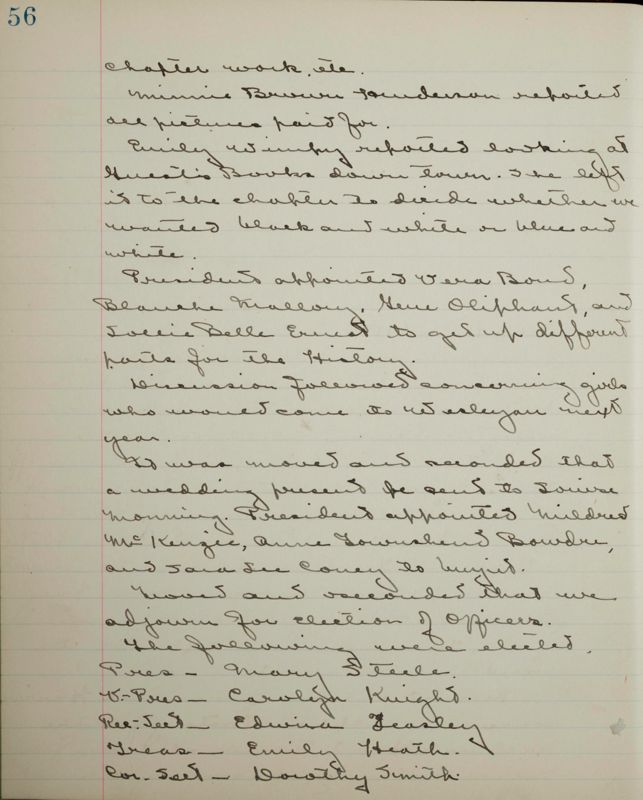 56
chapter work, etc.
Minnie Brown Henderson reported
all pictures paid for.
Emily reported looking at
Guest's Books down town. She left
it to the chapter to decide whether we
wanted black and white or blue and
white.
President appointed Vera Bond,
Blanche Mallory, Gene Oliphant, and
Sollie Belle Ernest to get up different
parts for the History.
Discussion followed concerning girls
who would come to Wesleyan next
year.
It was moved and seconded that
a wedding present be sent to Louise
Monning. President appointed Mildred
McKenzie, Anne Townshend Bowdre,
and Sara Lee Coney to buy it.
Moved and seconded that we
adjourn for election of officers.
The following were elected.
Pres – Mary Steele.
V.-Pres – Carolyn Knight.
Rec-Sect – Edwina Teasley
Treas – Emily Heath.
Cor. Sect – Dorothy Smith.